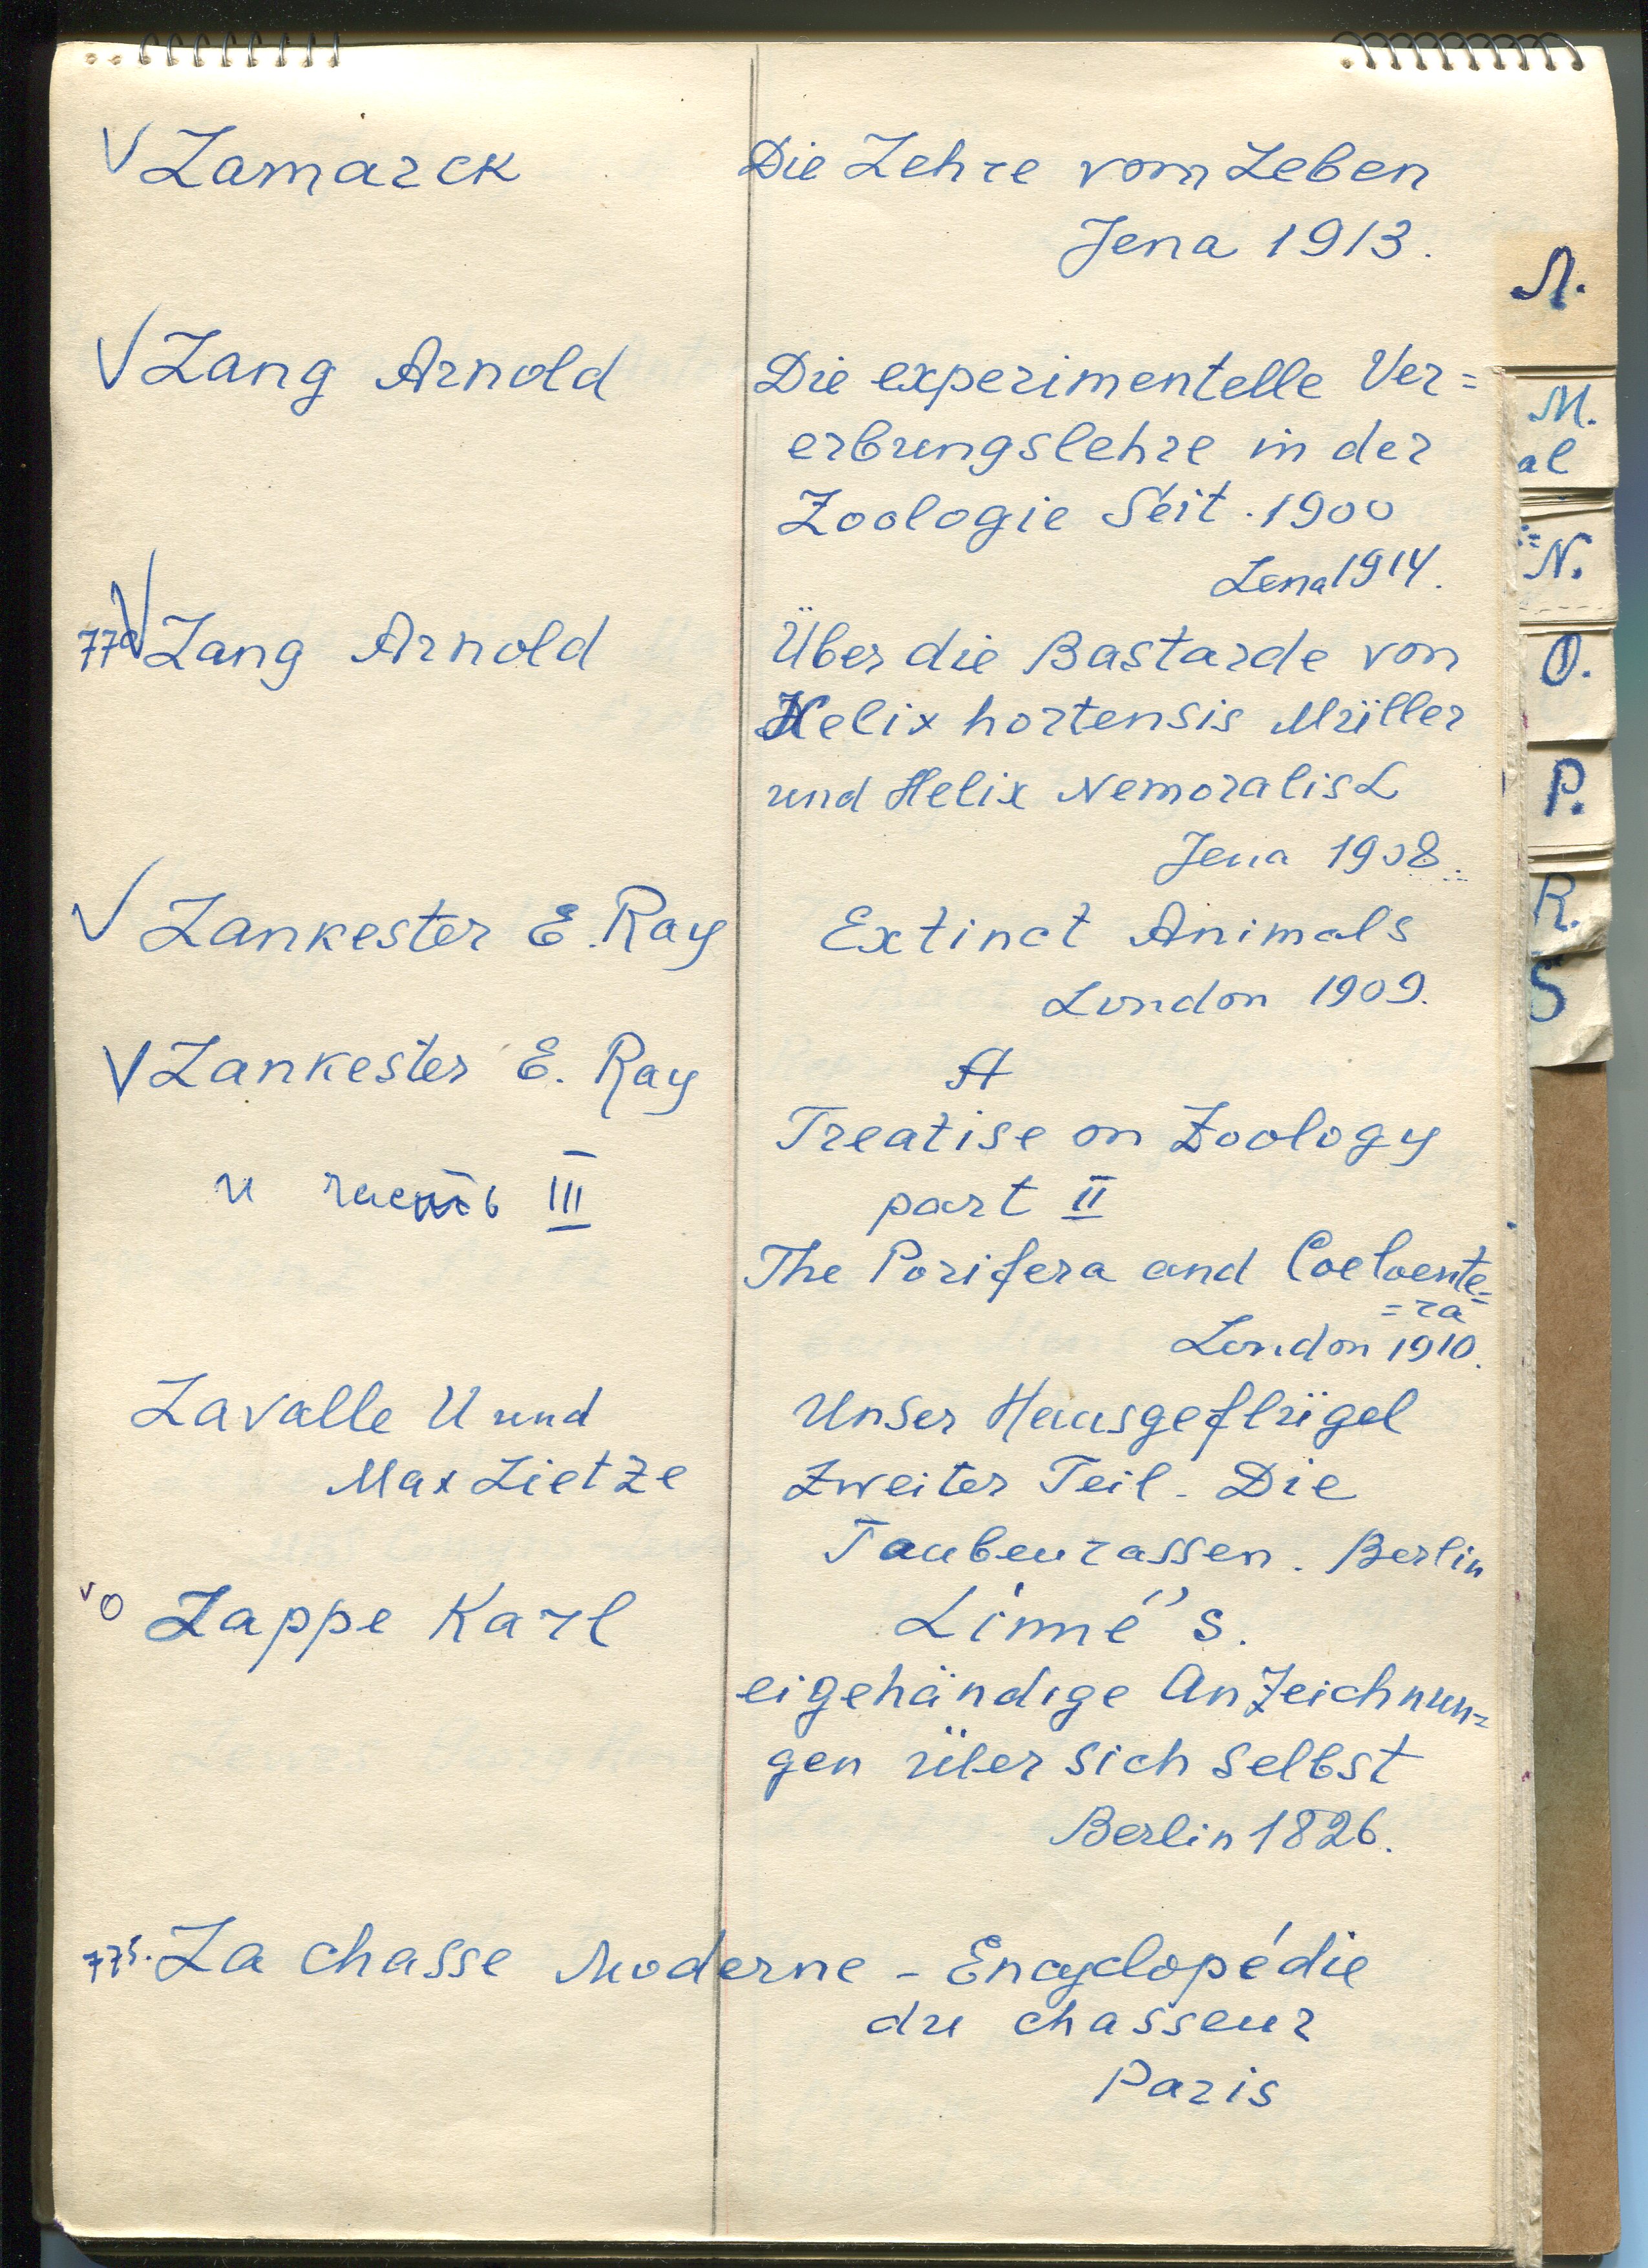 V Lamarck
Die Lehre vom Leben
Jena 1913.
V Lang Arnold
Die experimentelle Ver=
erbungslehre in der
Zoologie Seit. 1900
Jena 1914.
V Lang Arnold
Über die Bastarde von
Helix hortensis Müller
und Helix Nemoralis L
Jena 1908.
V Lankester E. Ray
Extinct Animals
London 1909.
V Lankester E. Ray
и часть III
A
Treatise on Zoology
part II
The Porifera and Coeloente=
=ra
London 1910.
Lavalle U und
Max Lietze
Unser Hausgeflügel
Zweiter Teil. Die
Taubenrassen. Berlin
v o Lappe Karl
Linné's.
eigehändige Anzeichnun=
gen über sich selbst
Berlin 1826.
775. La chasse Moderne - Encyclopédie
du chasseur
Paris
Л.
M.
al
N.
O.
P.
R.
S